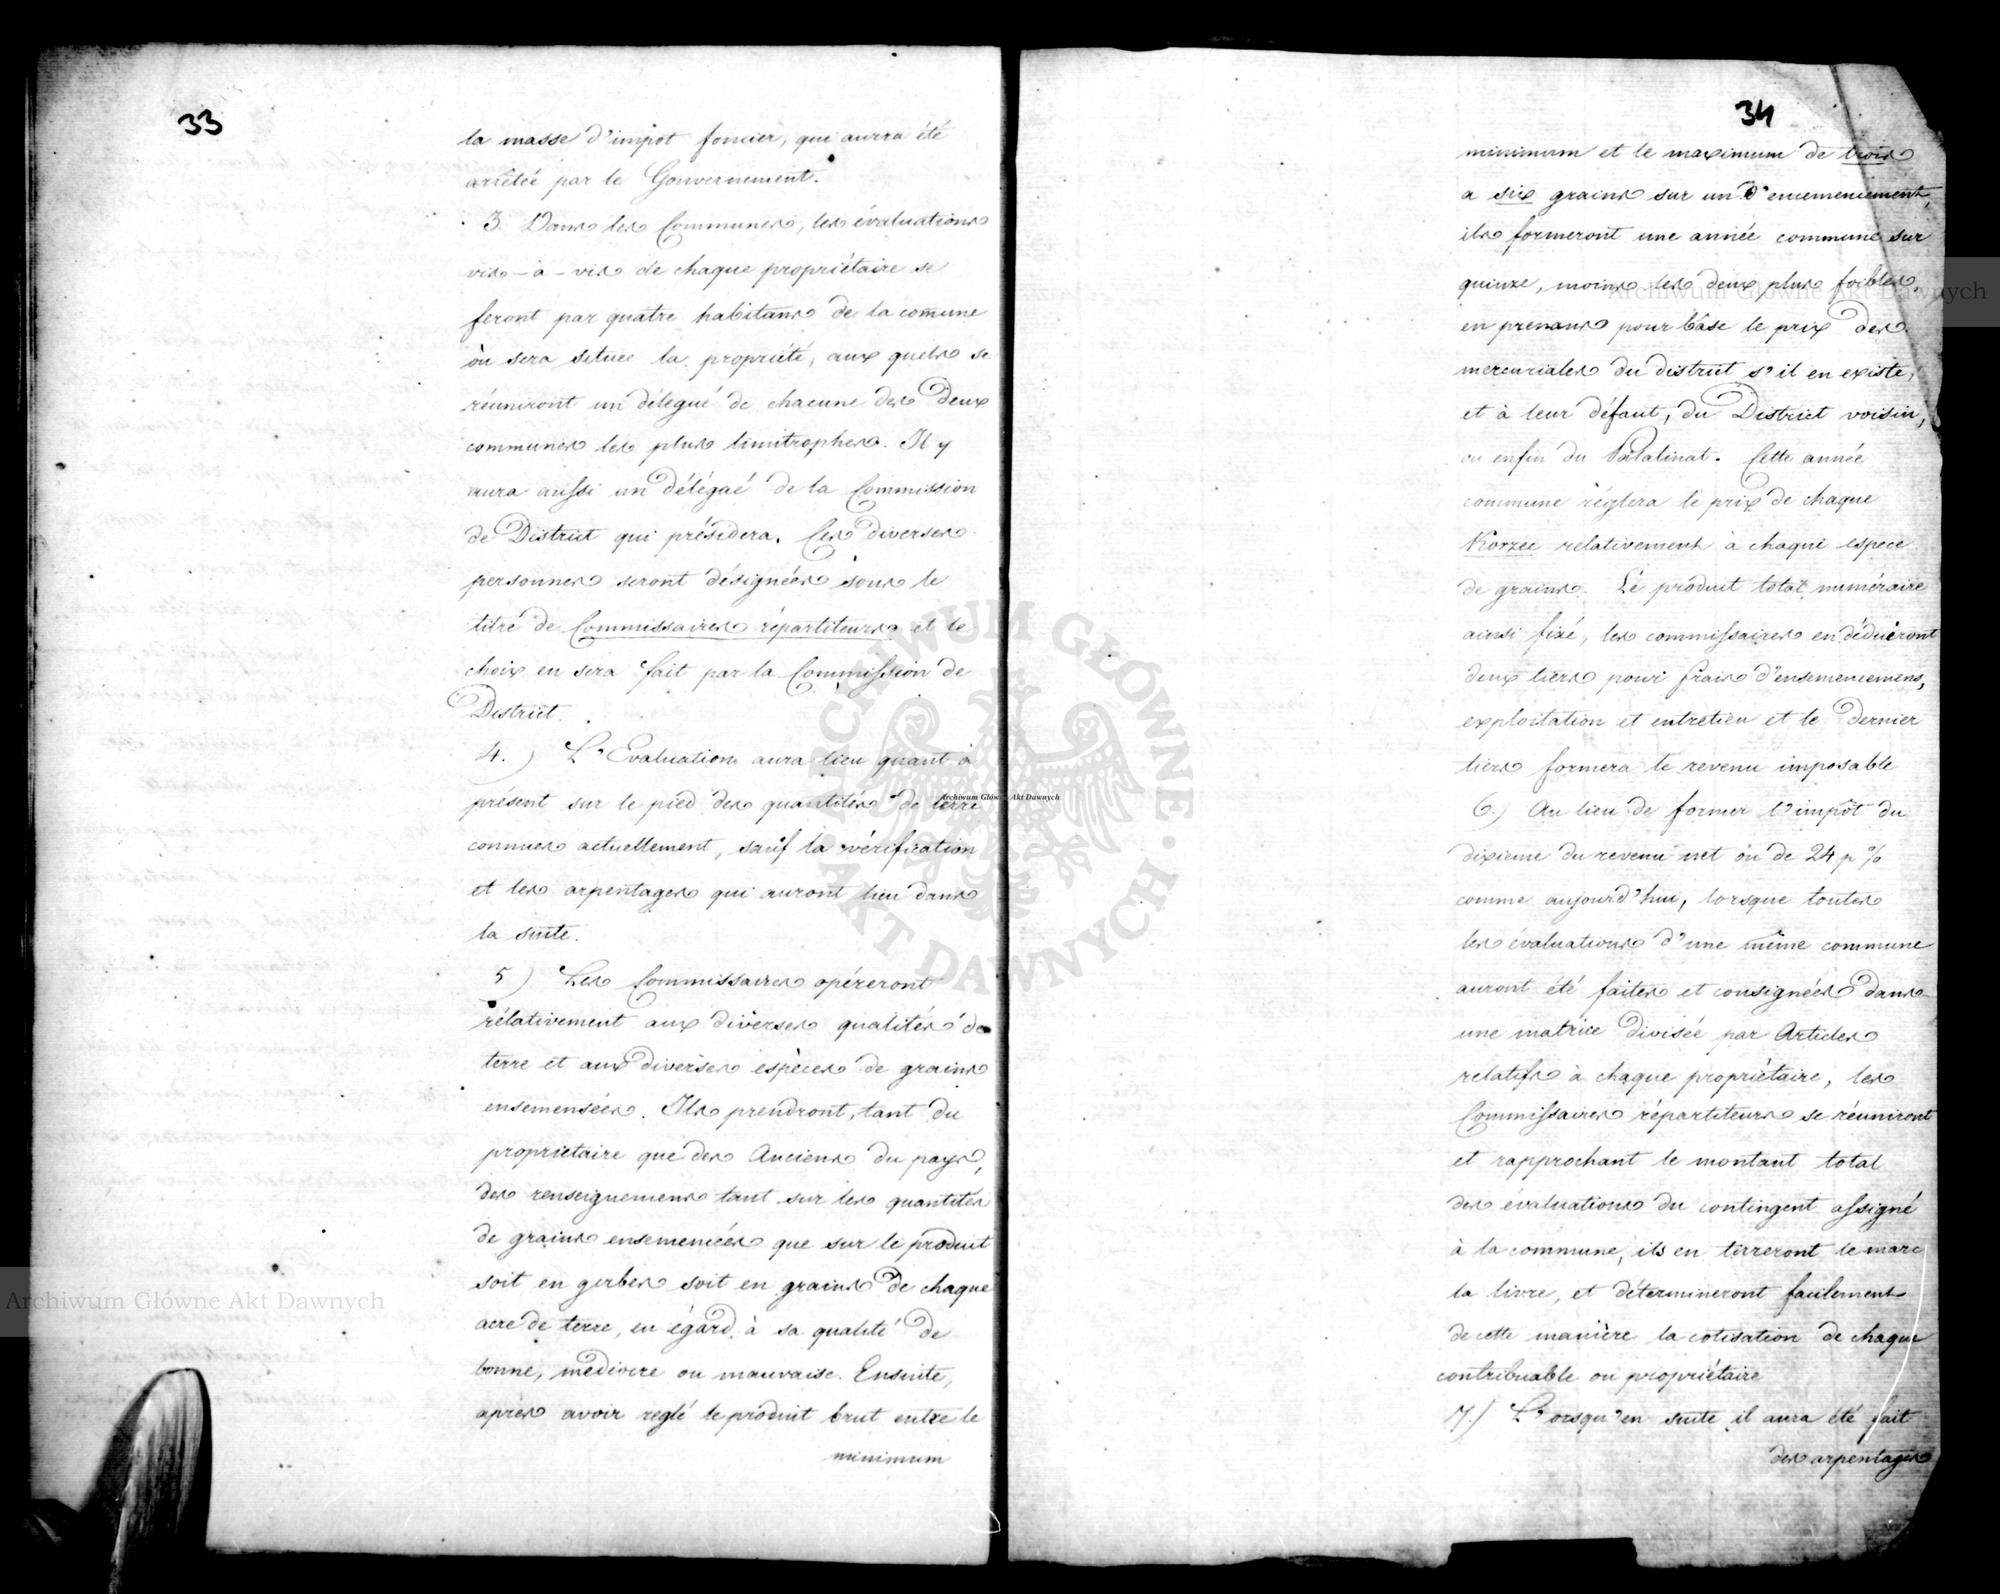 33
la masse d'impot foncier, qui aurra été
arrêtée par le Gouvernement.
3. Dans les Communes, les évaluations
vis-à-vis de chaque propriétaire se
feront par quatre habitans de la comune
òu sera située la propriété, aux quels se
réuniront un délégué de chacune des deux
communes les plus limitrophes. Il y
aura aussi un délégué de la Commission
de District qui présidera. Ces diverses
personnes seront désignées sous le
titre de Commissaires répartiteurs et le
choix en sera fait par la Commission de
District.
4.) L'Evaluation aura lieu quant à
présent sur le pied des quantités de terre
connues actuellement, sauf la vérification
et les arpentages qui auront lieu dans
la suite.
5) Les Commissaires opéreront
rélativement aux diverses qualités de
terre et aux diverses espèces de grains
ensemensées. Ils prendront, tant du
propriétaire que des Anciens du pays,
des renseignemens tant sur les quantités
de grains ensemencées que sur le produit
soit en gerbes soit en grains de chaque
acre de terre, eu égard à sa qualité de
bonne, médiocre ou mauvaise. Ensuite,
après avoir reglé le produit brut entre le
minimum
34
minimum et le maximum de trois
a six grains sur un d'encemencement,
ils formeront une année commune sur
quinze, moins les deux plus foibles,
en prenans pour bâse le prix des
mercuriales du district s'il en existe,
et à leur défaut, du District voisin,
ou enfin du Palatinat. Cette année
commune réglera le prix de chaque
Korzec relativement à chaque espece
de grains. Le produit total numéraire
ainsi fixé, les commissaires en déduéront
deux tiers pour frais d'ensemencemens,
exploitation et entretien et le dernier
tiers formera le revenu imposable
6.) Au lieu de former l'impôt du
dixieme du revenu net òu de 24 p %
comme aujourd'hui, lorsque toutes
les évaluations d'une même commune
auront été faites et consignées dans
une matrice divisée par Articles
relatifs à chaque propriétaire, les
Commissaires répartiteurs se réuniront
et rapprochant le montant total
des évaluations du contingent assigné
à la commune, ils en tirreront le marc
la livre, et détermineront facilement
de cette manière la cotisation de chaque
contribuable ou propriétaire
7.) L'orsqu'en suite il aura été fait
des arpentages
Archiwum Główne Akt Dawnych
Archiwum Główne Akt Dawnych
Archiwum Główne Akt Dawnych
ARCHIWUM GŁÓWNE AKT DAWNYCH